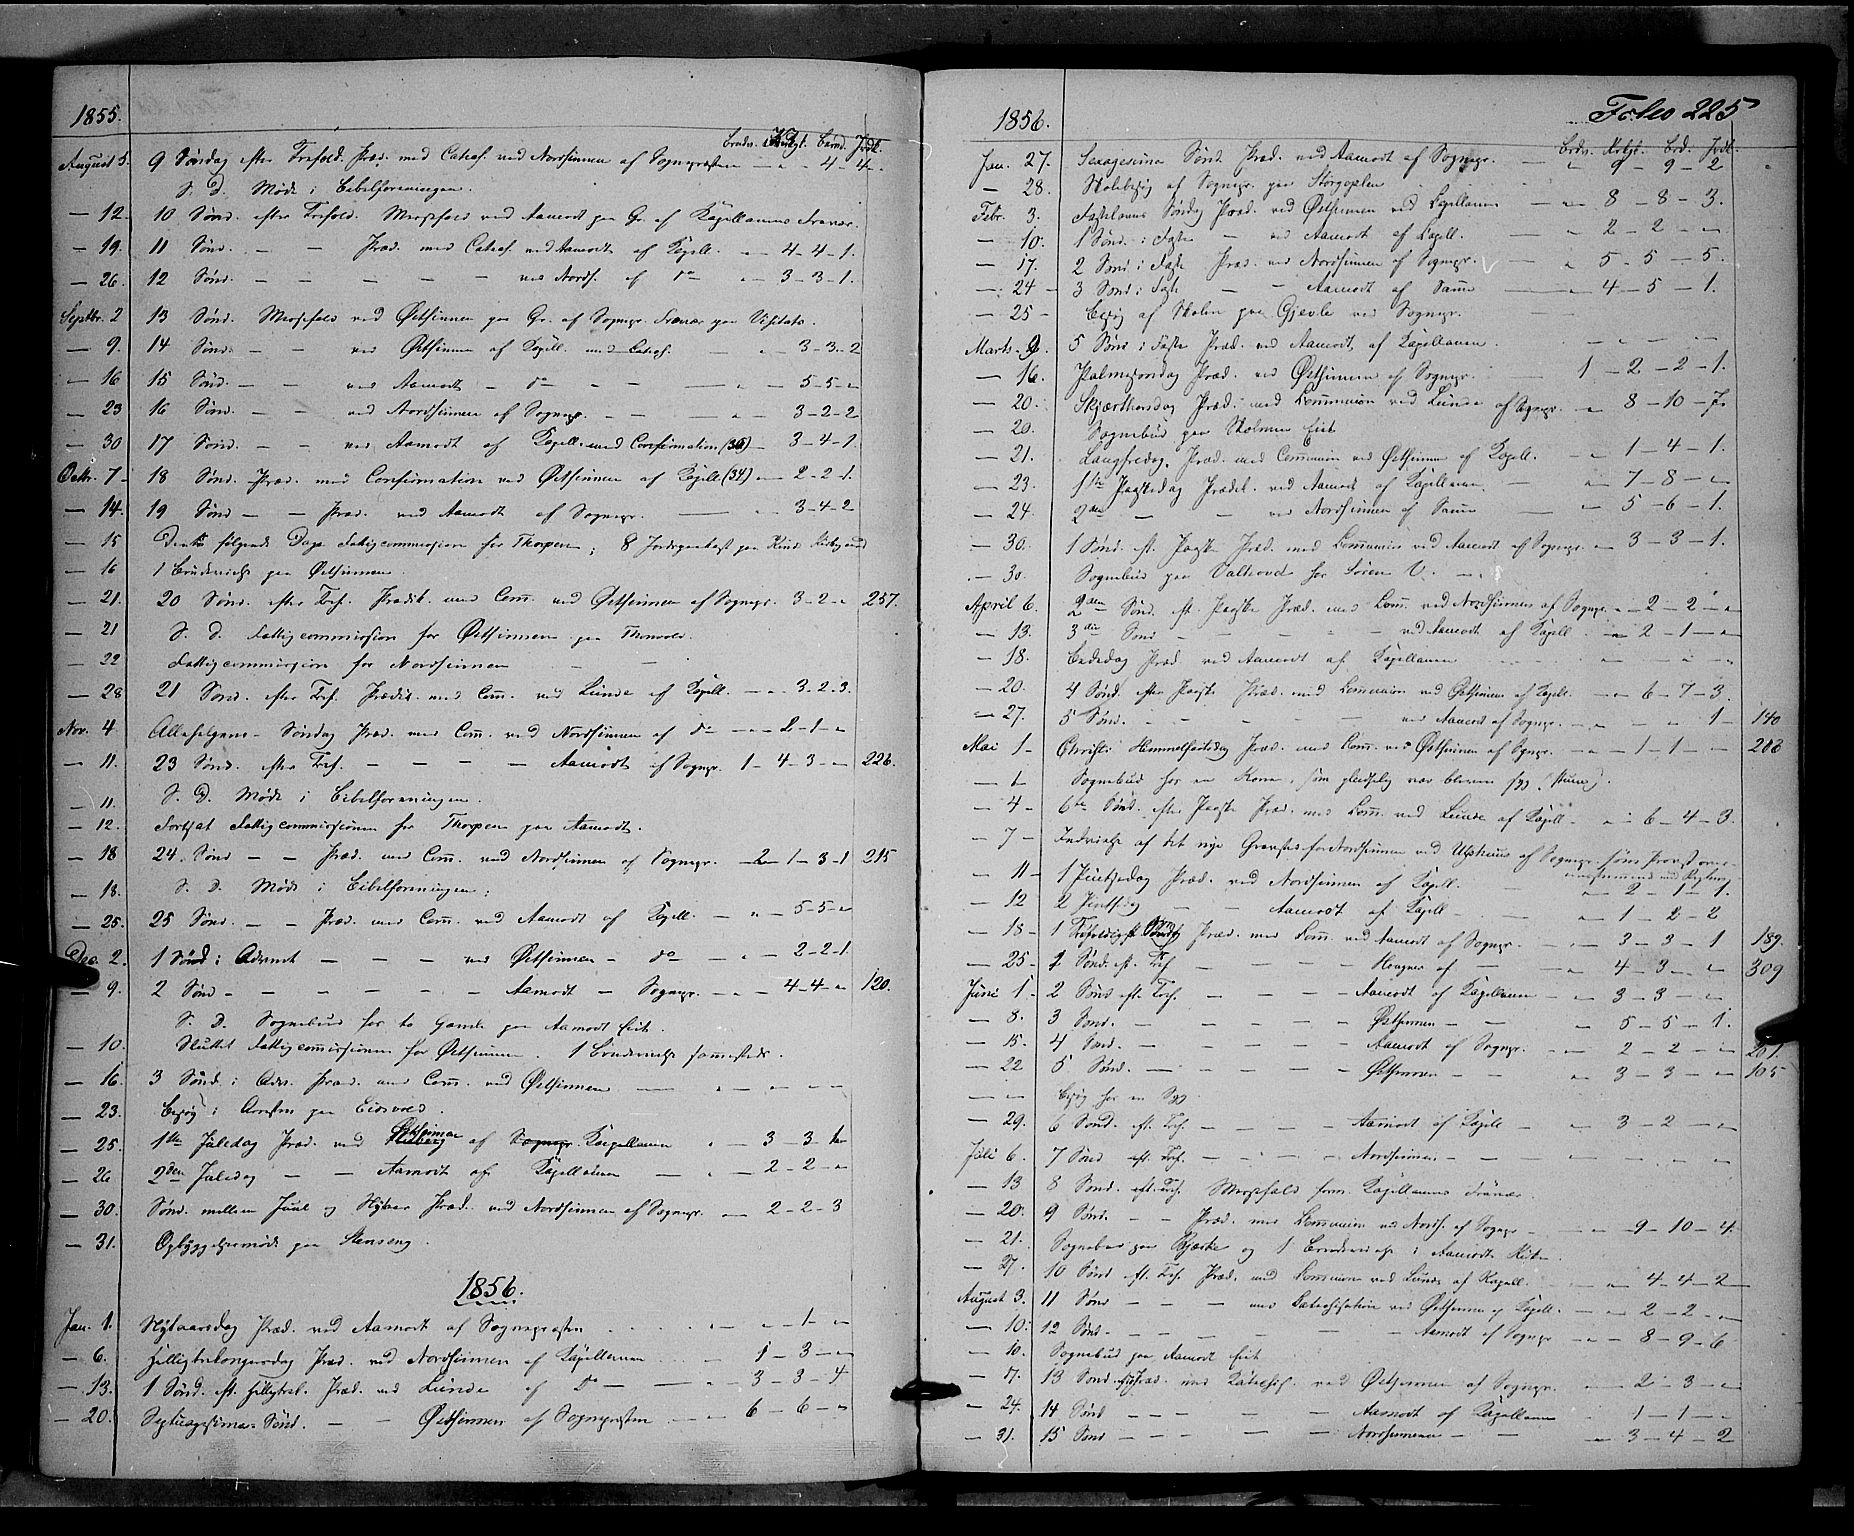 1855.
Brudv. Kirkgt. Barnd. Jodk.
August 5. 9 Søndag efter Trefold. Præd. med Catech. ved Nordsinnen af Sognepræsten " 4 4 "
S. D. Møde i Bibelforeningen.
— 12. 10 Sønd. efter Trefold. Messefald ved Aamodt paa Gr. af Kapellanens Fravær.
— 19. 11 Sønd. — — Præd. med Catech. ved Aamodt af Kapell. — " — 4 — 4 — 1.
— 26. 12 Sønd. — — — — ved Nords. af do " 3 — 3 — 1.
Septbr. 2 13 Sønd. Messefald ved Østsinnen paa Gr. af Sognepr. Fravær paa Visitats.
— 9. 14 Sønd. — — ved Østsinnen af Kapell. med Catech. — " 3 — 3 — 2
— 16 15 Sønd. — — ved Aamodt — do — — — " — 5 — 5 — "
— 23 16 Sønd. — — ved Nordsinnen af Sognepr. — — — " 3 — 2 — 2
— 30 17 Sønd. — — ved Aamodt af Kapell. med Confirmation (36) — 3 — 4 — 1.
Octbr. 7 — 18 Sønd. Præd. med Confirmation ved Østsinnen af Kapell. (34) — " — 2 — 2 — 1.
— 14. 19 Sønd. — — Præd. ved Aamodt af Sognepr. — " — 3 — 4 — 2
— 15 følgende Dage Fattigcommission for Thorpen; 8 paa
— 16 1 Brudevielse paa Østsinnen.
— 21. 20 Sønd. efter Tref. Prædik. med Com. ved Østsinnen af Sognepr. 3 — 2 — " 257.
— 21 S. D. Fattigcommission for Østsinnen paa Thonvold.
— 22 Fattigcommission for Nordsinnen — —
— 28 21 Sønd. efter Tref. Prædik. med Com. ved Lunde af Kapell. — " — 3 — 2 — 3.
Nov. 4 Allehelgens-Søndag Præd. med Com. ved Nordsinnen af do — " — 2 — 1 — "
— 11. 23 Sønd. efter Tref. — — — — Aamodt af Sognepr. 1 — 4 — 3 — " 226.
— 11. S. D. Møde i Bibelforeningen.
— 12. Fortsat Fattigcommissionen for Thorpen paa Aamodt.
— 18 24. Sønd — — Præd. med Com. ved Nordsinnen af Sognepr. — 2 — 1 — 3 — 1 215
— 18. S. D. Møde i Bibelforeningen;
— 25. 25 Sønd. — — Præd. med Com. ved Aamodt af Kapell. — " — 5 — 5 — "
Dec. 2. 1 Sønd i Advent — — — ved Østsinnen — do — " — 2 — 2 — 1.
— 9. 2 Sønd — — — — — — Aamodt — Sognepr. — " — 4 — 4 — " 120.
S. D. Sognebud for to Gamle paa Aamodt Eiet.
— 10. Sluttet Fattigcommissionen for Østsinnen. 1 Brudevielse sammesteds.
— 16. 3 Sønd. i Adv. Præd. med Com. ved Østsinnen — " — " — " — "
— 23. Besøg i Arresten paa Eidsvold.
— 25. 1ste Juledag Præd. ved Østsinnen af Sognepr. Kapellanen " — 3 — 3 —
— 26 2den Juledag — — Aamodt af Kapellanen — " — 2 — 2 — "
— 30. Sønd. mellem Juul og Nytaar Præd. ved Nordsinnen af Sognepr. — " — 2 — 2 — 3
— 31. Opbyggelsesmøde paa Stenseng.
1856.
Jan. 1. Nytaarsdag Præd. ved Aamodt af Sognepræsten " — " — 1 — "
— 6. Helligtrekongersdag Præd. ved Nordsinnen af Kapellanen — 1 — 3 — "
— 13. 1 Sønd. ef. Helligtrek. Præd. ved Lunde af do — " — 3 — 3 — 4
— 20. Septuagesima Sønd. — — Østsinnen af Sognepræsten — " — 6 — 6 — "
1856. Folio 225
Brdv. Krkgt. Brd. Jodk.
Jan. 27. Sexagesima Sønd. Præd. ved Aamodt af Sognepr. — " 9 — 9 — 2
— 28. Skolebesøg af Sognepr. paa
Febr. 3. Fastelavns Søndag Præd. ved Østsinnen ved Kapellanen — " — 8 — 8 — 3.
— 10. 1 Sønd. i Faste — ved Aamodt af Kapell. — " 2 — 2 — "
— 17. 2 Sønd i Faste Præd. ved Nordsinnen af Sognepr. — " 5 — 5 — 5.
— 24 — 3 Sønd i Faste — — Aamodt af Samme — " 4 — 5 — 1.
— 25 — Besøg af Skolen paa Gjevle ved Sognepr.
Marts. 9. 5 Sønd i Faste Præd. ved Aamodt af Kapellanen. — — — —
— 16. Palmesøndag Præd. ved Østsinnen af Sognepr. 1 — 2 — 2 — 1.
— 20. Skjærthorsdag Præd. med Communion ved Lunde af Sognepr. " 8 — 10 — 7
— 20. Sognebud paa Eiet
— 21. Langfredag. Præd. med Communion ved Østsinnen af Kapell. — " — 1 — 4 — 1.
— 23. 1ste Paaskedag Prædik. ved Aamodt af Kapellanen — " 7 — 8 — "
— 24. 2den — — ved Nordsinnen af Samme — 5 — 6 — 1.
— 30. 1 Sønd. ef. Paaske Præd. med Communion ved Aamodt af Sognepr. — " 3 — 3 — 1.
— 30. Sognebud paa for Søren
April 6. 2den Sønd. ef. Paaske Præd. med Kom. ved Nordsinnen af Sognepr. — " — 2 — 2 — "
— 13. 3die Sønd — — — — ved Aamodt af Kapell. — " 2 — 1 — "
— 18. Bededag Præd. ved Aamodt af Kapellanen " — " — "
— 20. 4 Sønd. efter Paaske Præd. med Communion ved Østsinnen af Kapell. — " 6 — 7 — 3.
— 27. 5 Sønd. — — — — ved Aamodt af Sognepr. — " — " — " 1 — 140
Mai 1 — Christi Himmelfartsdag Præd. med Kom. ved Østsinnen af Sognepr. — " — 1 — 1 — " 288
— 1 Sognebud for en Kone, som pludselig var bleven syg
— 4 — 6te Sønd. efter Paaske Præd. med Kom. ved Lunde af Kapell. — " 6 — 4 — 3.
— 7 — Indvielse af det nye Gravsted for Nordsinnen ved Ulshuus af Sognepr.
— 11 — 1 Pintsedag Præd. ved Nordsinnen af Kapell. — " 2 — 1 — 1.
— 12 2 Pintsdag — — Aamodt af Kapell — " — 1 — 2 — 2
— 18 — 1 Præd. med Kom. ved Aamodt af Sognepr. — " 3 — 3 — 1 189.
— 25 — 1 Sønd. ef. Tref — — — — af — " 4 — 3 — " 309
Juni 1 — 2 Sønd ef. Tref. — — — — Aamodt af Kapellanen — " 3 — 3 — "
— 8. 3 Sønd. — — — — — Østsinnen — — — " 5 — 5 — 1.
— 15. 4 Sønd. — — — — — Aamodt af Sognepr. — " 2 — 2 — " 201.
— 22 5 Sønd. — — — — — Østsinnen — — " 3 — 3 — " 105
— " Besøg hos en Syg
— 29. 6 Sønd. ef. Tref. — — — — Aamodt af Kapell — 3 — 2 — "
Juli 6. 7 Sønd ef. Tref. — — — — Nordsinnen — — — — —
— 13 8 Sønd. ef. Tref. Messefald form. Kapellanens Fravær.
— 20. 9 Sønd. — — Præd. med Communion ved Nords. af Sognepr. — " 9 — 10 — 4.
— 21. Sognebud paa Bjørke og 1 Brudevielse i Aamodts Kirke.
— 27. 10 Sønd ef. Tref. Præd. med Communion ved Lunde af Kapell. — " 4 — 4 — 2
August 3. 11 Sønd — — — med Katechisation ved Østsinnen af Kapell. — " 2 — 2 — "
— 10. 12 Sønd. — — — — — Aamodt af Sognepr — " 8 — 9 — 6
— 10. Sognebud paa Aamodt Eiet
— 17. 13 Sønd. Præd. med Katechis. ved Østsinnen af Sognepr. — 2 — 3 — "
— 24. 14 Sønd — — — — — Aamodt af Kapellanen — 1 — 1 — "
— 31. 15 Sønd — — — — — Nordsinnen — — — " 3 — 4 — 2